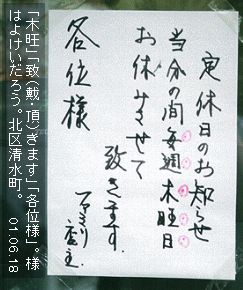 定休日のお知らせ
当分の間毎週木旺日
お休みさせて
致きます.
店主
各位様
「木旺」「致(戴・頂)きます」「各位様」。様
はよけいだろう。北区清水町。 01.06.18